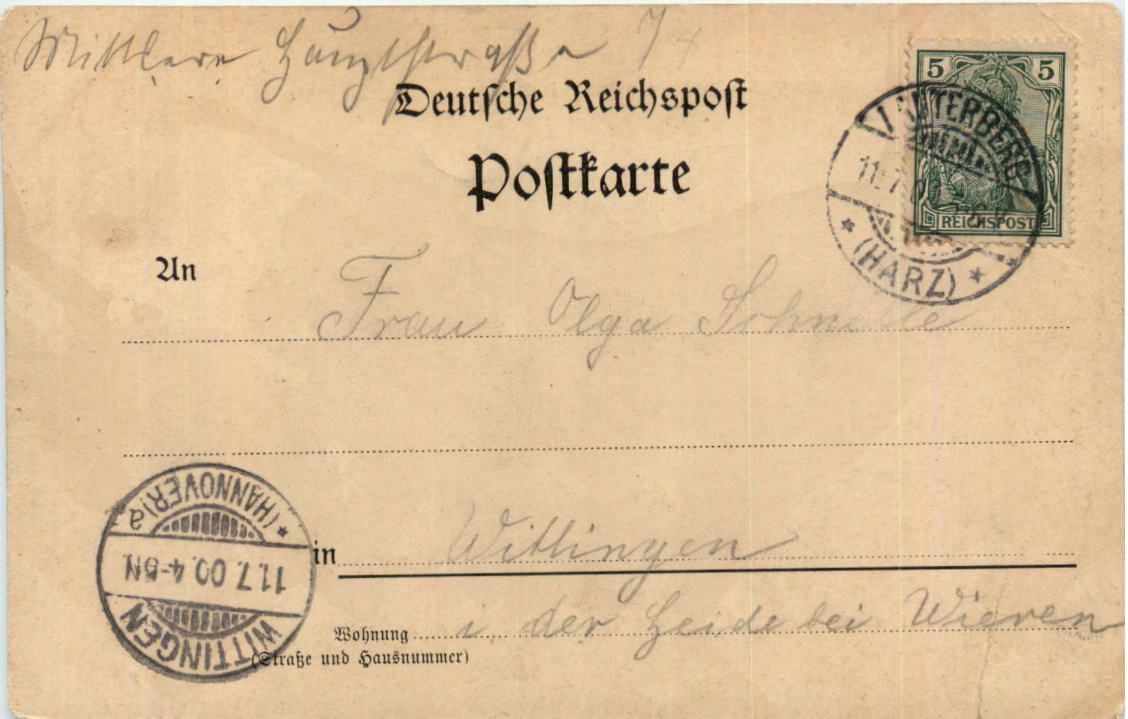 Mittlere Hauptstraße 7
Deutsche Reichspost
Postkarte
5 5
REICHSPOST
LAUTERBERG
11.7
* (HARZ) *
An
Frau Olga Schnelle
in Wittingen
Wohnung i. der Heide bei Wieren
(Straße und Hausnummer)
WITTINGEN
11.7.00.4-5N.
* (HANNOVER) a